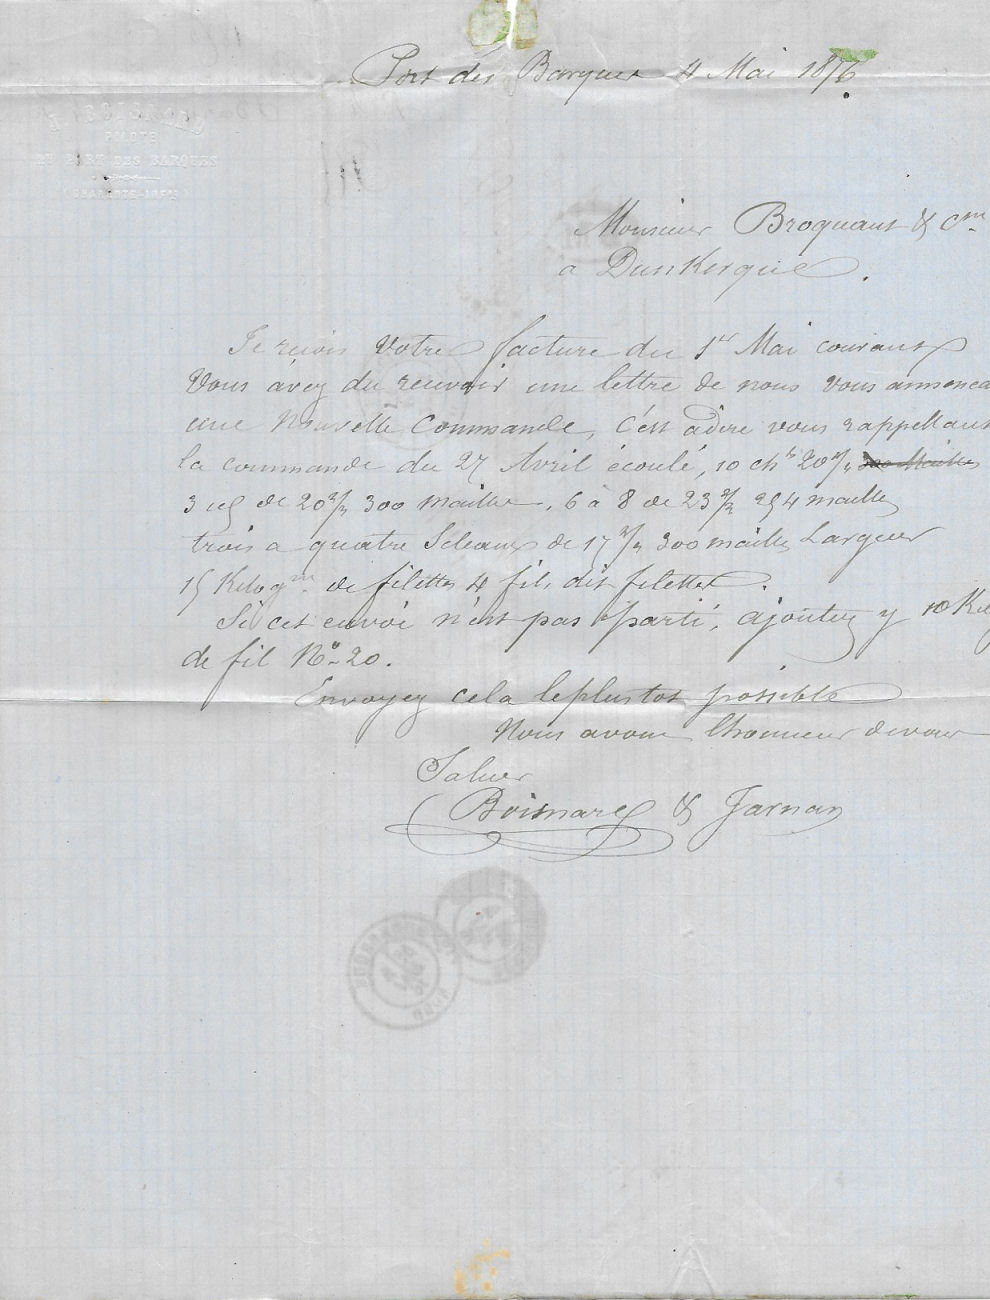 Port des Barques 4 Mai 1876
PILOTE
DU PORT DES BARQUES
Monsieur Broquant & Cie
a Dunkerque.
Je reçois Votre facture du 1er Mai courant
Vous avez du recevoir une lettre de nous vous annonca
une Nouvelle Commande, c'est adire vous rappellant
la commande du 27 Avril écoulé, 10 20 m/m
3 de 20 m/m 300 mailles, 6 à 8 de 23 m/m 254 mailles
trois a quatre de 17 m/m 300 mailles Largeur
15 Kilogm de filettes 4 fils dit filettes.
Si cet envoi n'est pas parti, ajoutez y 10 Kilog
de fil No 20.
Envoyez cela leplustot possible
Nous avons lhonneur devous
Saluer
Boismare & Jarnan